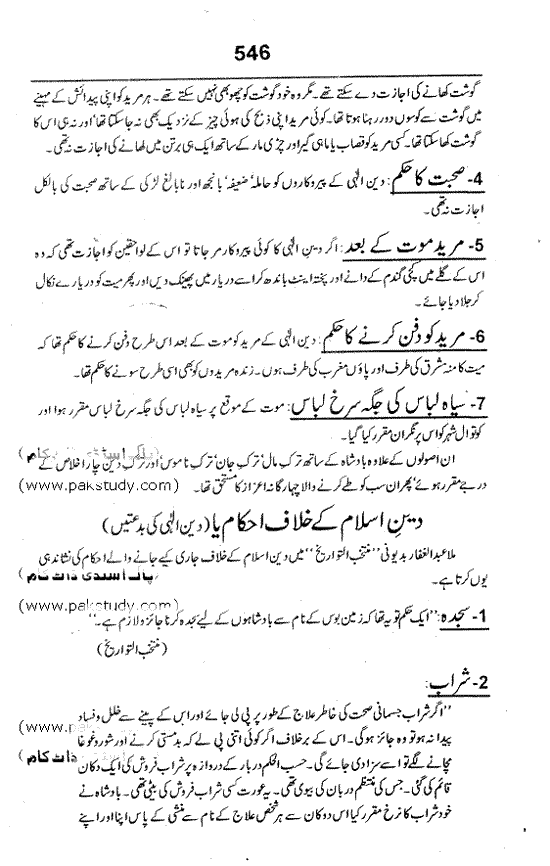 546
گوشت کھانے کی اجازت دے سکتے تھے۔ مگر وہ خود گوشت کو چھو بھی نہیں سکتے تھے۔ ہر مرید کو اپنی پیدائش کے مہینے
میں گوشت سے کوسوں دور رہنا ہوتا تھا۔ کوئی مرید اپنی ذبح کی ہوئی چیز کے نزدیک بھی نہ جا سکتا تھا' اور نہ ہی اس کا
گوشت کھا سکتا تھا۔ کسی مرید کو قصاب یا ماہی گیر اور چڑی مار کے ساتھ ایک ہی برتن میں کھانے کی اجازت نہ تھی۔
4- صحبت کا حکم: دین الٰہی کے پیروکاروں کو حاملہ' ضعیفہ' بانجھ اور نابالغ لڑکی کے ساتھ صحبت کی بالکل
اجازت نہ تھی۔
5- مرید موت کے بعد: اگر دینِ الٰہی کا کوئی پیروکار مر جاتا تو اس کے لواحقین کو اجازت تھی کہ وہ
اس کے گلے میں کچی گندم کے دانے اور پختہ اینٹ باندھ کر اسے دریا میں پھینک دیں اور پھر میت کو دریا سے نکال
کر جلا دیا جائے۔
6- مرید کو دفن کرنے کا حکم: دین الٰہی کے مرید کو موت کے بعد اس طرح دفن کرنے کا حکم تھا کہ
میت کا منہ مشرق کی طرف اور پاؤں مغرب کی طرف ہوں۔ زندہ مریدوں کو بھی اسی طرح سونے کا حکم تھا۔
7- سیاہ لباس کی جگہ سرخ لباس: موت کے موقع پر سیاہ لباس کی جگہ سرخ لباس مقرر ہوا اور
کوتوال شہر کو اس پر نگران مقرر کیا گیا۔
ان اصولوں کے علاوہ بادشاہ کے ساتھ ترکِ مال' ترکِ جان' ترکِ ناموس' اور ترکِ دین چار اخلاص کے
درجے مقرر ہوئے' پھر ان سب کو طے کرنے والا چہارگانہ اعزاز کا مستحق تھا۔ (www.pakstudy.com)
دینِ اسلام کے خلاف احکام یا (دین الٰہی کی بدعتیں)
ملا عبدالغفار بدیونی "منتخب التواریخ" میں دین اسلام کے خلاف جاری کیے جانے والے احکام کی نشاندہی
یوں کرتا ہے۔ (پاک اسٹڈی ڈاٹ کام)
(www.pakstudy.com)
1- سجدہ: "ایک حکم تو یہ تھا کہ زمین بوس کے نام سے بادشاہوں کے لیے سجدہ کرنا جائز و لازم ہے۔"
(منتخب التواریخ)
2- شراب:
"اگر شراب جسمانی صحت کی خاطر علاج کے طور پر پی لی جائے اور اس کے پینے سے خلل و فساد
پیدا نہ ہو تو وہ جائز ہوگی۔ اس کے برخلاف اگر کوئی اتنی پی لے کہ بدمستی کرنے اور شور و غوغا
مچانے لگے تو اسے سزا دی جائے گی۔ حسب الحکم دربار کے دروازہ پر شراب فروش کی ایک دکان
قائم کی گئی۔ جس کی منتظم دربان کی بیوی تھی۔ یہ عورت کسی شراب فروش کی بیٹی تھی۔ بادشاہ نے
خود شراب کا نرخ مقرر کیا اس دوکان سے ہر شخص علاج کے نام سے منشی کے پاس اپنا اور اپنے